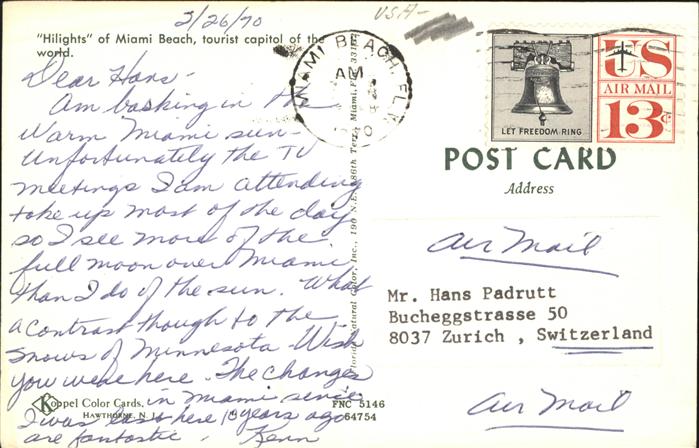 3/26/70
USA-
"Hilights" of Miami Beach, tourist capitol of the
world.
Dear Hans -
Am basking in the
warm Miami sun -
Unfortunately the TV
meetings I am attending
take up most of the day
so I see more of the
full moon over Miami
than I do of the sun. What
a contrast though to the
snows of Minnesota. Wish
you were here. The changes
in Miami since
I was here 10 years ago
are fantastic.
Koppel Color Cards.
HAWTHORNE, N. J.
FNC 5146
64754
Natural Color, Inc., 190 N.E. 186th Terr., Miami, Fla. 331
MIAMI BEACH, FLA.
AM
LET FREEDOM RING
US
AIR MAIL
13¢
POST CARD
Address
Air Mail
Mr. Hans Padrutt
Bucheggstrasse 50
8037 Zurich , Switzerland
Air Mail